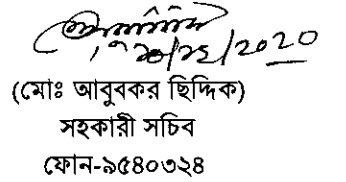 ২০/১২/2020
(মোঃ আবুবকর ছিদ্দিক)
সহকারী সচিব
ফোন-৯৫৪০৩২৪